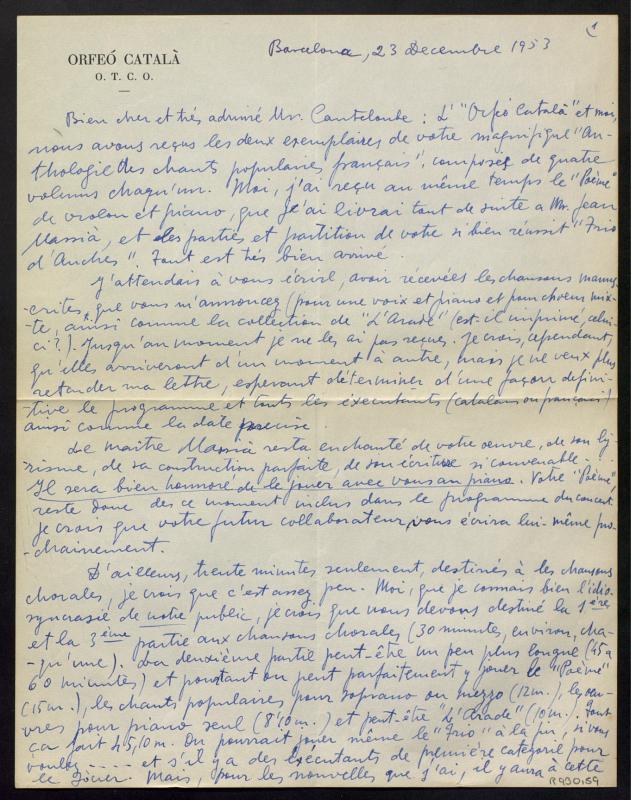 1
ORFEÓ CATALÀ
O. T. C. O.
Barcelona, 23 Decembre 1953
Bien cher et très admiré Mr. Canteloube : L' "Orfeó Català" et moi,
nous avons reçus les deux exemplaires de votre magnifiqu' "An-
thologie des chants populaires français", composée de quatre
volums chaqu'un. Moi, j'ai reçu au même temps le "Poème"
de violon et piano, que je l'ai livrai tout de suite a Mr. Jean
Massià, et les parties et partition de votre si bien réussit "Trio
d'Anches". Tout est très bien arrivé.
J'attendais à vous écrire, avoir récevées les chansons manus-
crites, que vous m'annoncez (pour une voix et piano et pour choeur mix-
te, ainsi comme la collection de "L'Arade" (est-il imprimé, celui-
ci?). Jusqu'au moment je ne les ai pas reçues. Je crois, cependant,
qu'elles arriveront d'un moment à autre, mais je ne veux plus
retarder ma lettre, esperant déterminer d'une façon defini-
tive le programme et touts les éxécutants (catalans ou français)
ainsi comme la date precise
Le maître Massià resta enchanté de votre oeuvre, de son ly-
risme, de sa construction parfaite, de son écriture si convenable.-
Il sera bien honoré de le jouer avec vous au piano. Votre "Poème"
reste donc des ce moment inclus dans le programme du concert
je crois que votre futur collaborateur, vous écrira lui-même pro-
chainement.
D'ailleurs, trente minutes seulement, destinés à les chansons
chorales, je crois que c'est assez peu. Moi, que je connais bien l'idio-
syncrasie de notre public, je crois que nous devons destiné la 1ère
et la 3ème partie aux chansons chorales (30 minutes, environ, cha-
-qu'une). La deuxième partie peut-être un peu plus longue (45 a
60 minutes) et pourtant on peut parfaitement y jouer le "Poème"
(15 m.), les chants populaires pour soprano ou mezzo (12 m.), les oeu-
vres pour piano seul (8'10 m.) et peut-être "L'Arade" (10 m.). Tout
ça fait 45,10 m. On pourrait jouer même le "Trio" à la fin, si vous
voulez .... et s'il y a des éxécutants de première categorie pour
le jouer. Mais, pour les nouvelles que j'ai, il y aura à cette
R930159